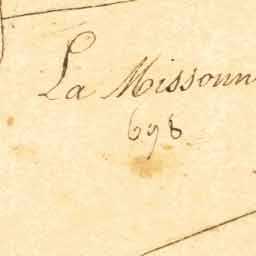 La Missonn
698